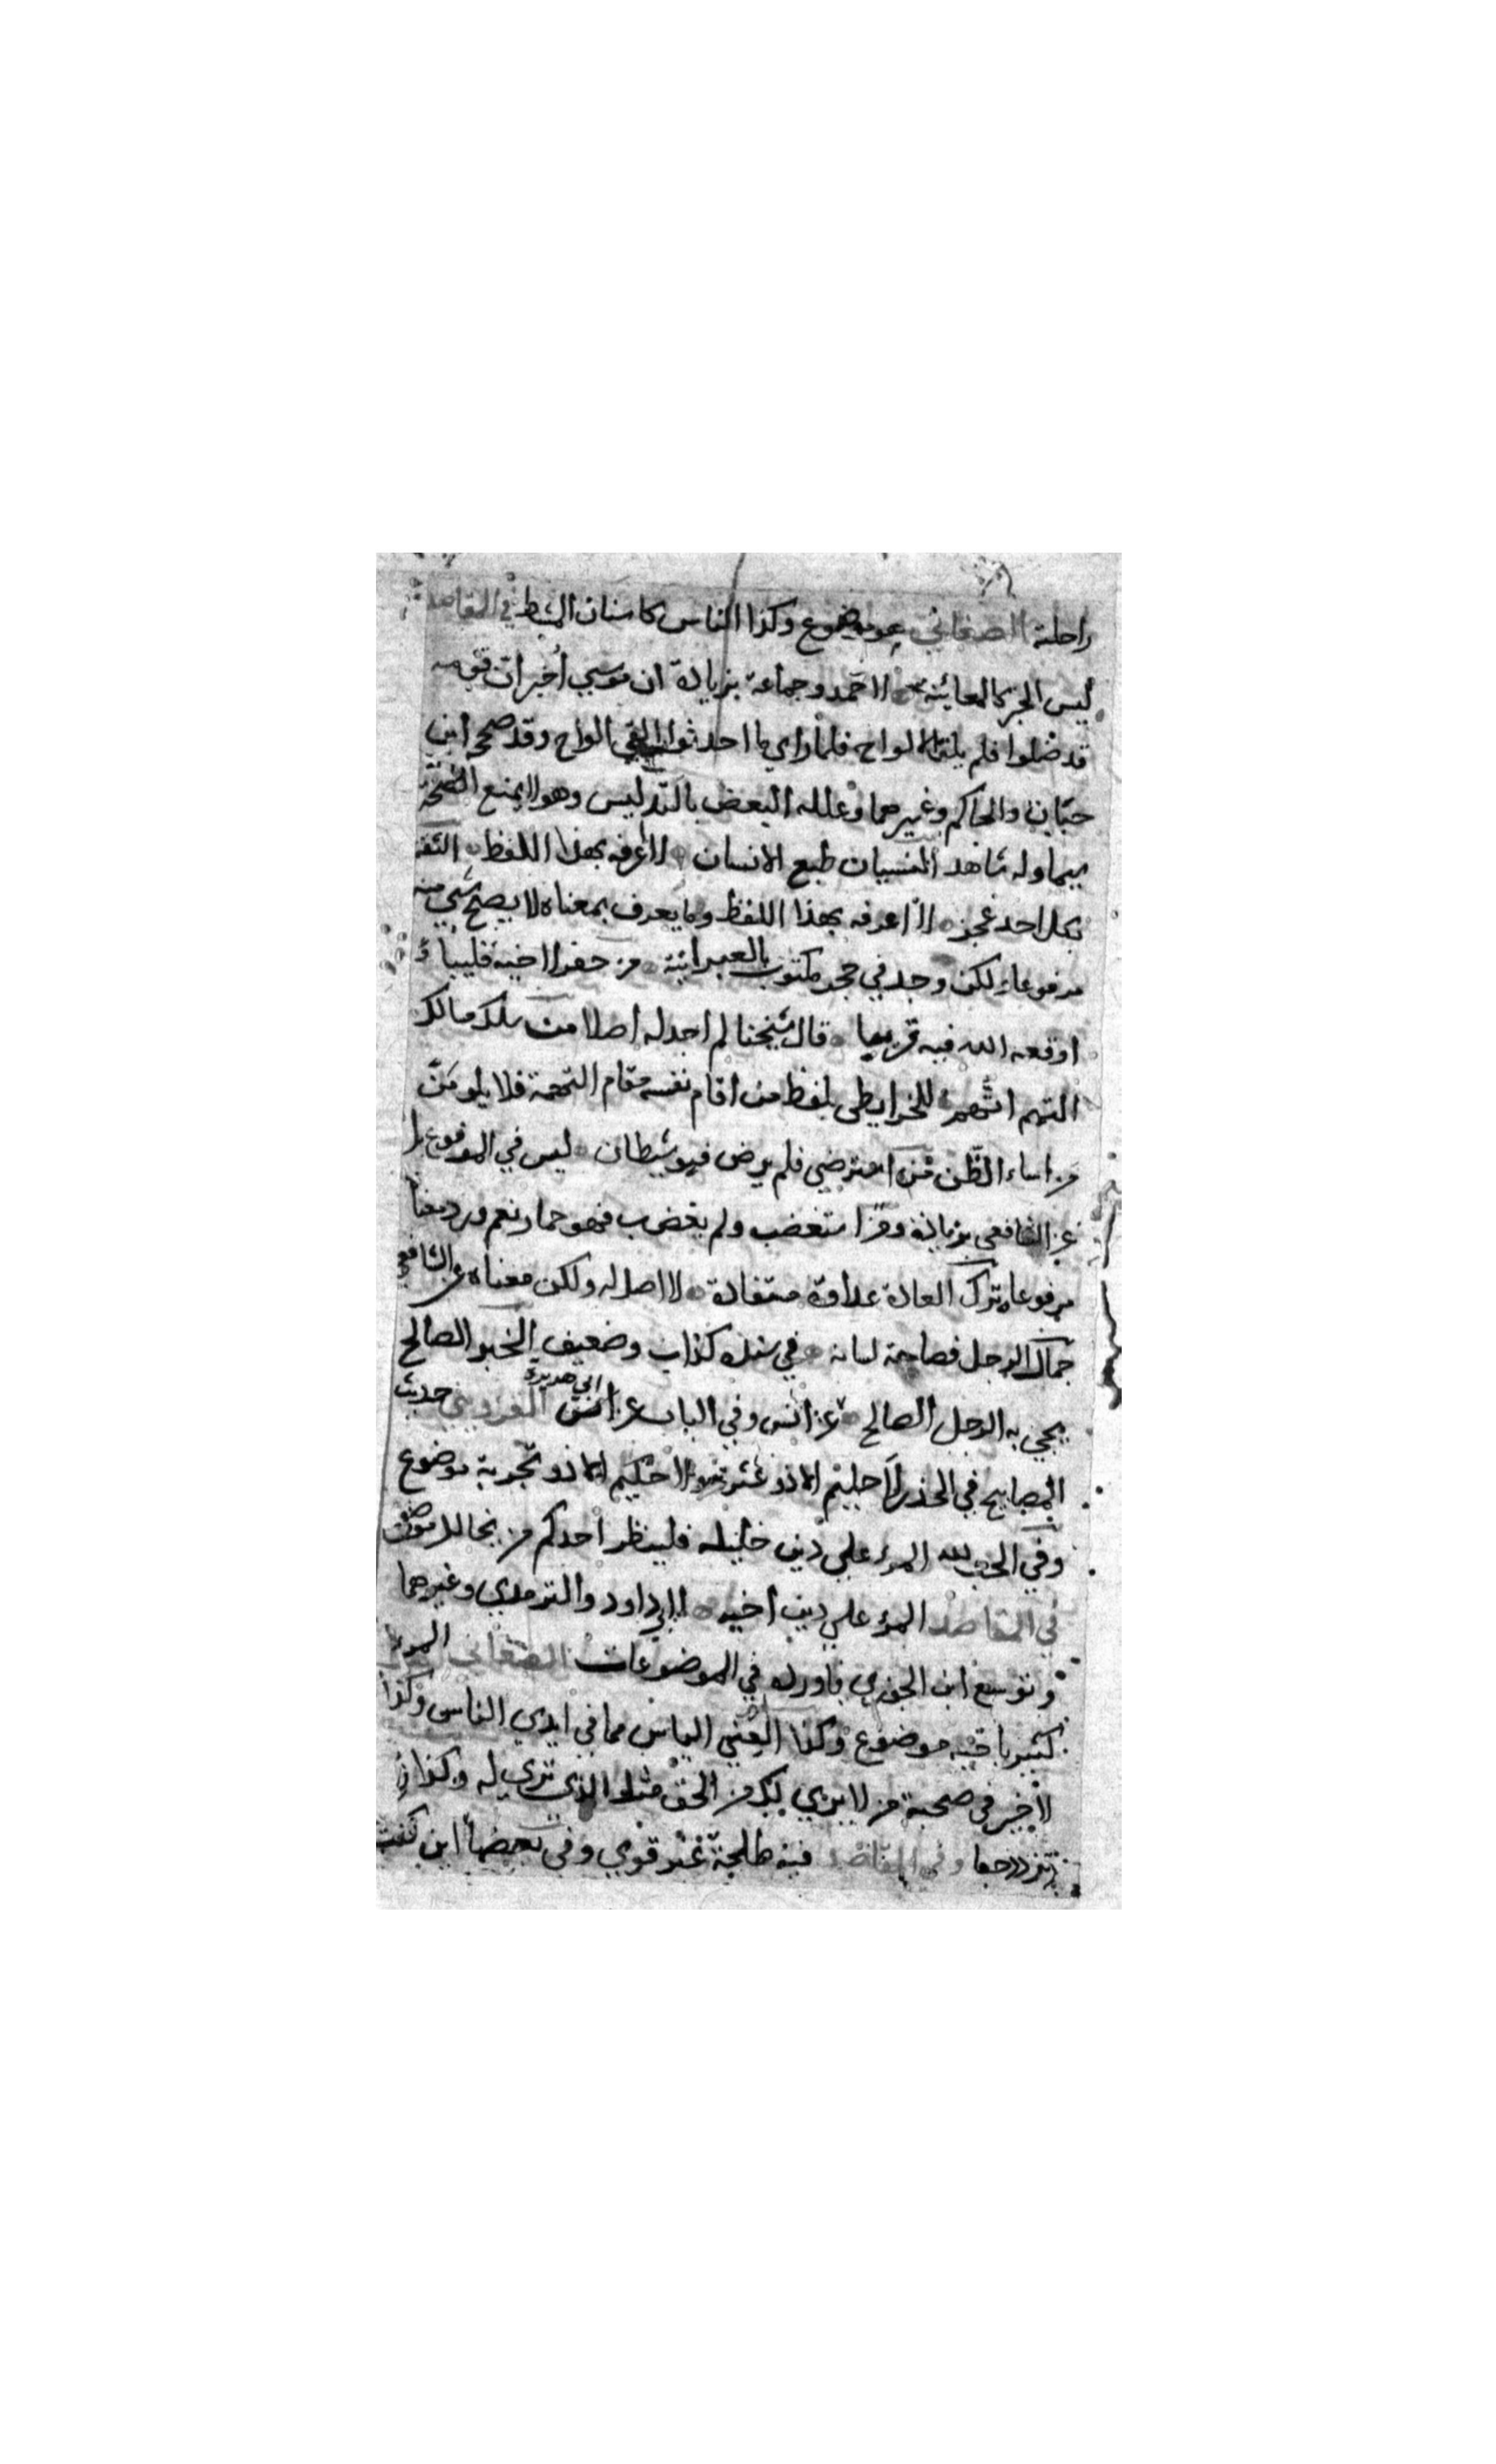 راحلة الصغاني هو موضوع وكذا الناس كاسنان المشط في المقاصد
ليس الخبر كالمعاينة لاحمد وجماعة بزيادة ان موسى أخبر ان قومه
قد ضلوا فلم يلق الالواح فلما راي ما احدثوا القي الالواح وقد صححه ابن
حبان والحاكم وغيرهما وعلله البعض بالتدليس وهو لا يمنع الصحة
سيما وله شاهد النسيان طبع الانسان لا اعرفه بهذا اللفظ الثقة
بكل احد عجز لا اعرفه بهذا اللفظ وما يعرف بمعناه لا يصح شي منه
مرفوعا لكن وجد في حجر مكتوب بالعبرانية من حفر لاخيه قليبا
اوقعه الله فيه قريبا قال شيخنا لم اجد له اصلا من سلك مسالك
التهم اتهم للخرايطي بلفظ من اقام نفسه مقام التهمة فلا يلومن
من اساء الظن من استرضي فلم يرض فهو شيطان ليس في المرفوع بل
عن الشافعي بزيادة ومن استغضب ولم يغضب فهو حمار نعم ورد معناه
مرفوعا ترك العادة عداوة مستفادة لا اصل له ولكن معناه عن الشافعي
جمال الرجل فصاحة لسانه في سنده كذاب وضعيف الخبر الصالح
يجي به الرجل الصالح عن انس وفي الباب عن ابي هريرة القزويني حديث
المصابيح في الحذر لا حليم الا ذو عثرة ولا حكيم الا ذو تجربة موضوع
وفي الحب لله المرء على دين خليله فلينظر احدكم من يخالل موضوع
في المقاصد المرء على دين اخيه لابي داود والترمذي وغيرهما
وتوسع ابن الجوزي فاورده في الموضوعات الصغاني المرء
كثير باخيه موضوع وكذا الغني الياس مما في ايدي الناس وكذا
لا خير في صحبة من لا يري لك من الحق مثل الذي تري له وكذا زر
تزدد حبا وفي المقاصد فيه طلحة غير قوي وفي بعضها اين كنت